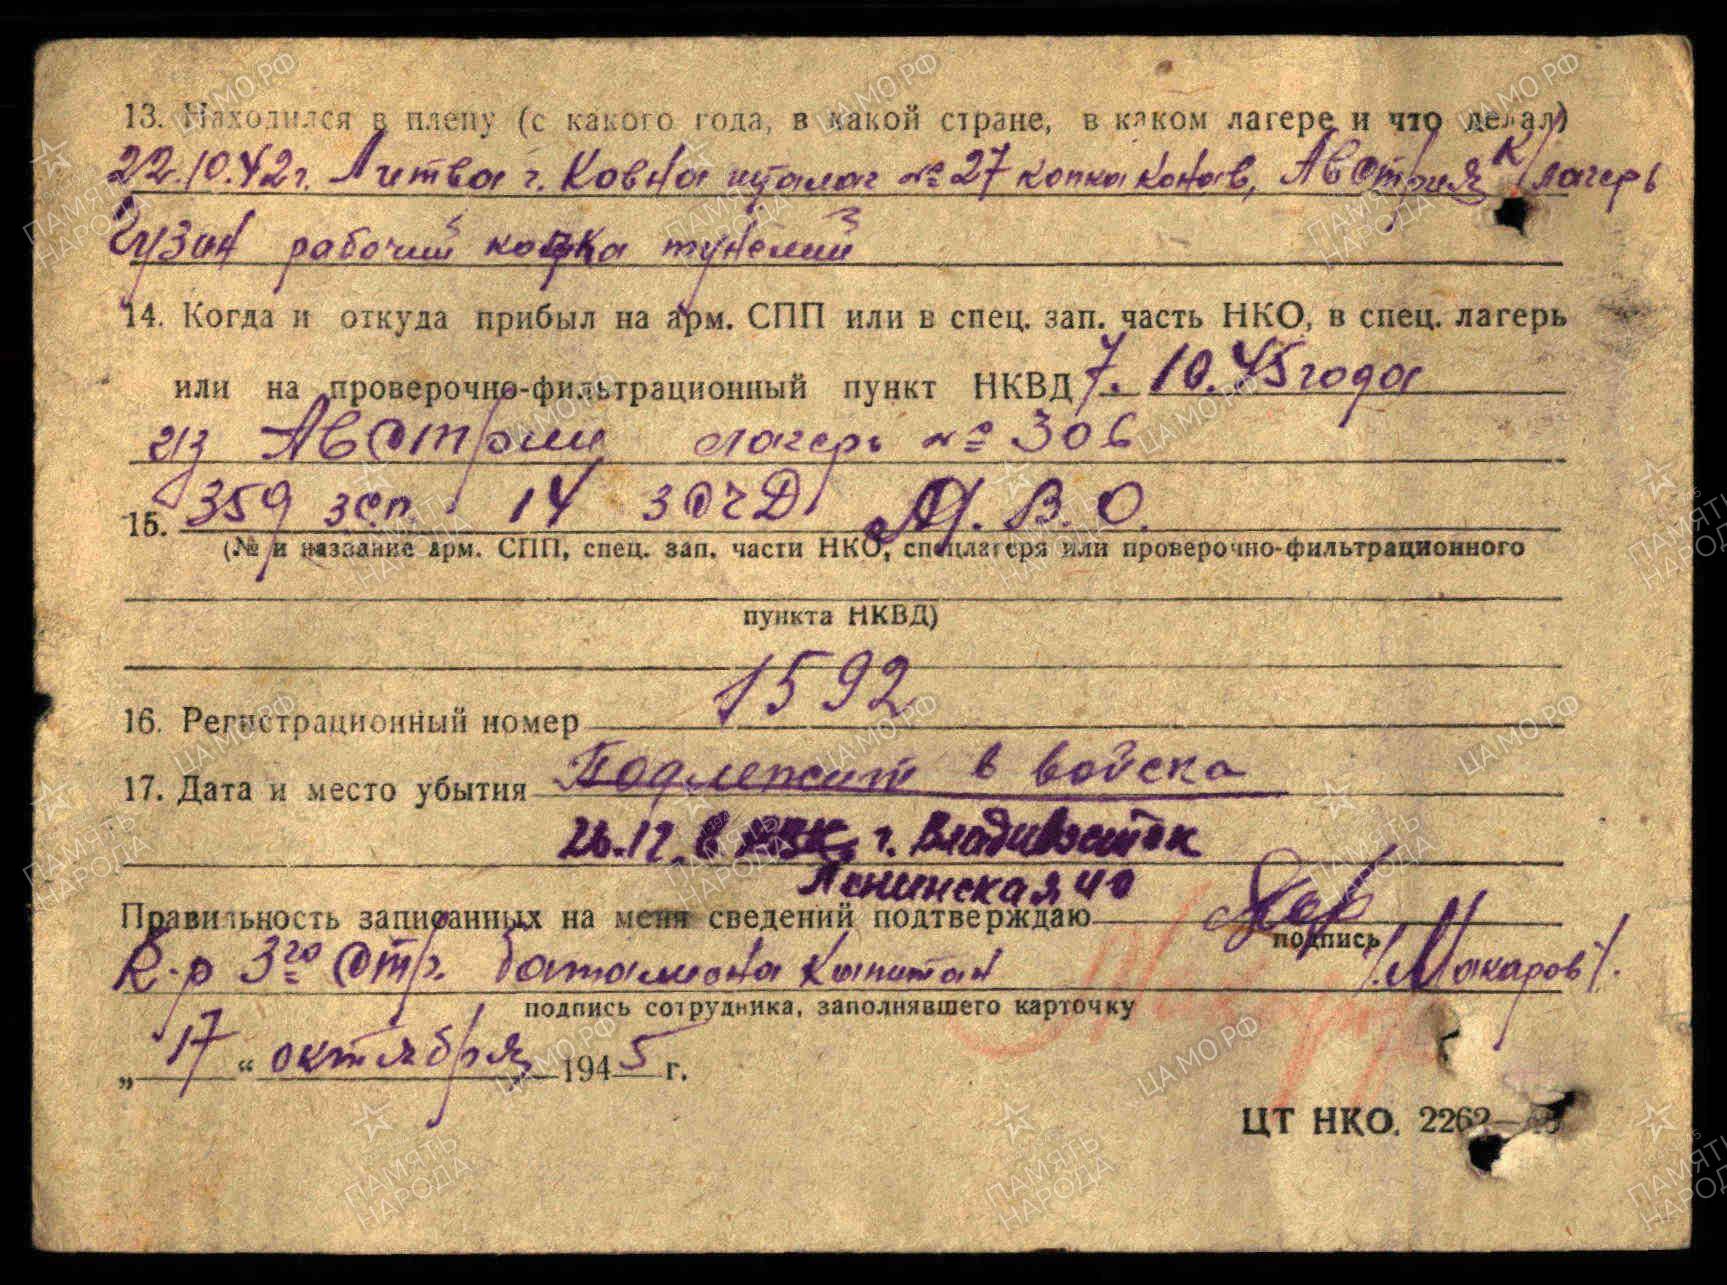 13. Находился в плену (с какого года, в какой стране, в каком лагере и что делал)
22.10.42 г. Литва г. Ковна шталаг № 27 копка конав, Австрия к/лагерь
Гузин рабочий копка тунелий
14. Когда и откуда прибыл на арм. СПП или в спец. зап. часть НКО, в спец. лагерь
или на проверочно-фильтрационный пункт НКВД 7. 10. 45 года
из Австрии лагерь № 306
15. 359 зсп. 14 зсд В. О.
(№ и название арм. СПП, спец. зап. части НКО, спецлагеря или проверочно-фильтрационного
пункта НКВД)
16. Регистрационный номер 1592
17. Дата и место убытия Подлежит в войска
26.12. в г. Владивосток
Ленинская 40
Правильность записанных на меня сведений подтверждаю
подпись
К-р 3го стр. баталиона капитан /Макаров/.
подпись сотрудника, заполнявшего карточку
„ 17 “ октября 1945 г.
ЦТ НКО. 2262